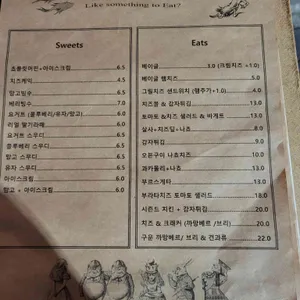 Like something to Eat?
Sweets
초콜릿머핀+아이스크림 6.5
치즈케익 4.5
망고빙수 6.5
베리빙수 7.0
요거트 (블루베리/유자/망고) 6.0
리얼 딸기라떼 6.0
요거트 스무디 6.5
블루베리 스무디 6.5
망고 스무디 6.5
유자 스무디 6.5
아이스크림 6.0
망고 + 아이스크림 6.0
Eats
베이글 3.0 (크림치즈 +1.0)
베이글 햄치즈 5.0
그릴치즈 샌드위치 (햄추가+1.0) 4.0
치즈볼 & 감자튀김 13.0
토마토 &치즈 샐러드 & 바게트 13.0
살사+치즈딥+나쵸 8.0
감자튀김 9.0
오븐구이 나쵸치즈 10.0
과카몰리+나쵸 13.0
부르스게타 12.0
부라타치즈 토마토 샐러드 18.0
시즈닝 치킨 + 감자튀김 20.0
치즈 & 크래커 (까망베르 /브리) 20.0
구운 까망베르/ 브리 & 견과류 22.0